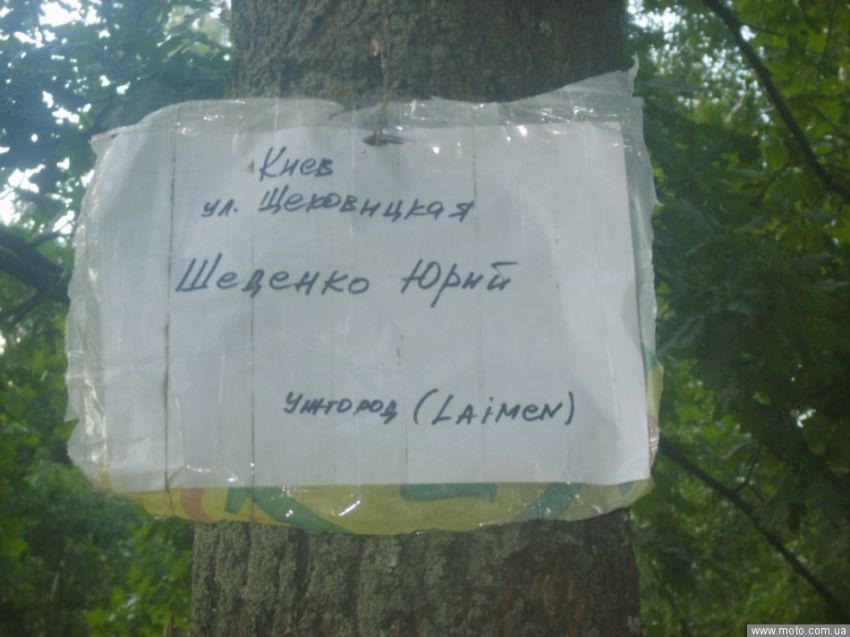 Киев
ул. Щековицкая
Шеденко Юрий
Ужгород (LAimeN)
www.moto.com.ua